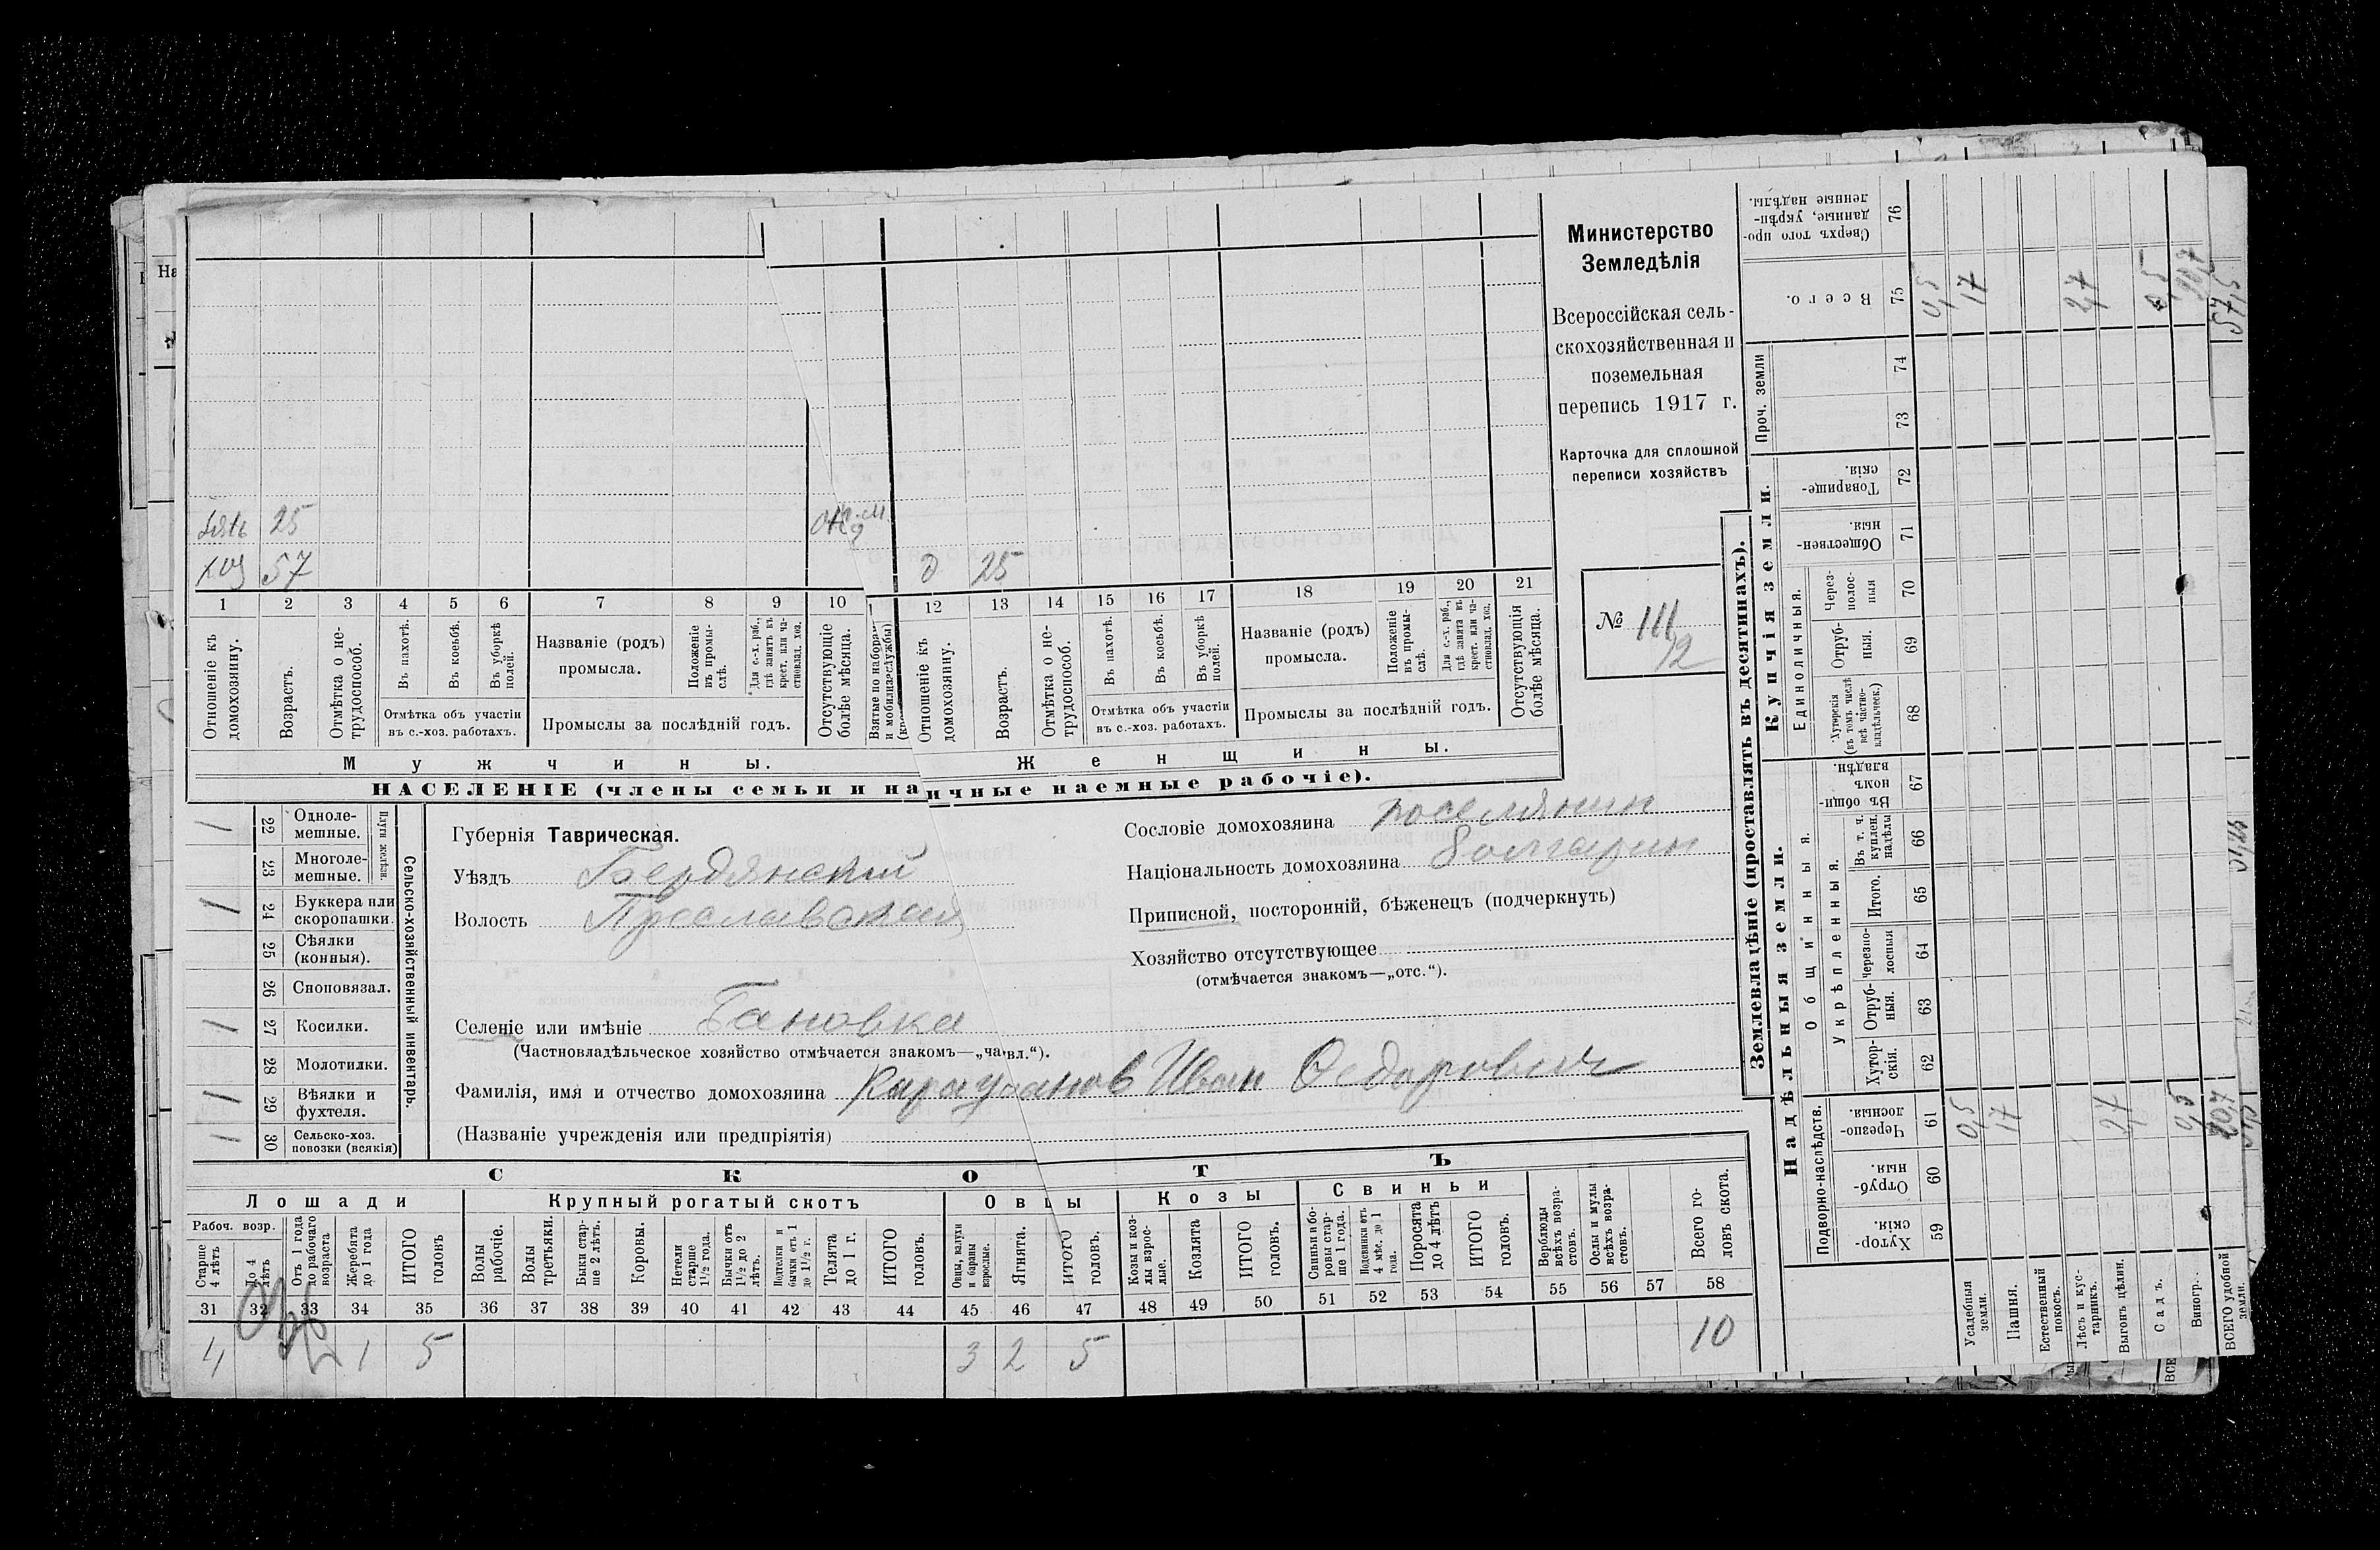 зять 25
хоз 57
д 25
1 2 3 4 5 6 7 8 9 10 12 13 14 15 16 17 18 19 20 21
Отношеніе къ домохозяину.
Возрастъ.
Отмѣтка о не-трудоспособ.
Въ пахотѣ.
Въ косьбѣ.
Въ уборкѣ полей.
Отмѣтка объ участіи
въ с.-хоз. работахъ.
Названіе (родъ)
промысла.
Положеніе въ промы-слѣ.
Для с.-х. раб., гдѣ занятъ въ крест. или ча-стновлад. хоз.
Промыслы за послѣдній годъ.
Отсутствующіе болѣе мѣсяца.
Взятые по набора
и мобилиз
Отношеніе къ домохозяину.
Возрастъ.
Отмѣтка о не-трудоспособ.
Въ пахотѣ.
Въ косьбѣ.
Въ уборкѣ полей.
Отмѣтка объ участіи
въ с.-хоз. работахъ.
Названіе (родъ)
промысла.
Положеніе въ промы-слѣ.
Для с.-х. раб., гдѣ занята въ крест. или ча-стновлад. хоз.
Промыслы за послѣдній годъ.
Отсутствующія болѣе мѣсяца.
Мужчины.
Женщины.
НАСЕЛЕНІЕ (члены семьи и наличные наемные рабочіе).
Министерство
Земледѣлія
Всероссійская сель-
скохозяйственная и
поземельная
перепись 1917 г.
Карточка для сплошной
переписи хозяйствъ
№ 111
12
Сельско-хозяйственный инвентарь.
Плуги желѣзн.
1 22 Одноле-мешные.
23 Многоле-мешные.
1 24 Буккера или скоропашки.
25 Сѣялки (конныя).
26 Сноповязал.
1 27 Косилки.
28 Молотилки.
1 29 Вѣялки и фухтеля.
1 30 Сельско-хоз. повозки (всякія)
Губернія Таврическая.
Уѣздъ Бердянский
Волость Преславская
Селеніе или имѣніе Бановка
(Частновладѣльческое хозяйство отмѣчается знакомъ—„ча.вл.“).
Фамилія, имя и отчество домохозяина Карагуланов Иван Федорович
(Названіе учрежденія или предпріятія)
Сословіе домохозяина поселянин
Національность домохозяина болгарин
Приписной, посторонній, бѣженецъ (подчеркнуть)
Хозяйство отсутствующее
(отмѣчается знакомъ—„отс.“).
СКОТЪ
Лошади
Крупный рогатый скотъ
Овцы
Козы
Свиньи
Рабоч. возр.
Старше 4 лѣтъ
До 4 лѣтъ
Отъ 1 года до рабочаго возраста
Жеребята до 1 года
ИТОГО головъ
Волы рабочіе.
Волы третьяки.
Быки стар-ше 2 лѣтъ.
Коровы.
Нетели старше 1½ года.
Бычки отъ 1½ до 2 лѣтъ.
Подтелки и бычки отъ 1 до 1½ г.
Телята до 1 г.
ИТОГО головъ.
Овцы, валухи и бараны взрослые.
Ягнята.
ИТОГО головъ.
Козы и коз-лы взрос-лые.
Козлята
ИТОГО головъ.
Свиньи и бо-ровы стар-ше 1 года.
Подсвинки отъ 4 мѣс. до 1 года.
Поросята до 4 лѣтъ
ИТОГО головъ.
Верблюды всѣхъ возра-стовъ.
Ослы и мулы всѣхъ возра-стовъ.
Всего го-ловъ скота.
31 32 33 34 35 36 37 38 39 40 41 42 43 44 45 46 47 48 49 50 51 52 53 54 55 56 57 58
4 1 5 3 2 5 10
Землевладѣніе (проставлять въ десятинахъ).
Надѣльныя земли.
Купчія земли.
Проч. земли
Подворно-наслѣдств.
Общинныя.
Укрѣпленныя.
Единоличныя.
Хутор-скія. 59
Отруб-ныя. 60
Черезпо-лосныя. 61
Хутор-скія. 62
Отруб-ныя. 63
Черезпо-лосныя 64
Итого. 65
Въ т. ч. куплен. надѣлы 66
Въ общи-номъ владѣн. 67
Хуторскія (въ томъ числѣ всѣ частно-владѣльческ.) 68
Отруб-ныя. 69
Через-полос-ныя 70
Обществен-ныя. 71
Товарище-скія. 72
73
74
Всего. 75
Сверхъ того про-данные, укрѣп-ленные надѣлы. 76
Усадебныя земли. 0,5 0,5
Пашня. 17 17
Естественный покосъ.
Лѣсъ и кус-тарникъ.
Выгонъ цѣлин. 2,7 2,7
Садъ.
Виногр. 0,5 0,5
ВСЕГО удобной земли. 20,7 20,7
57,5